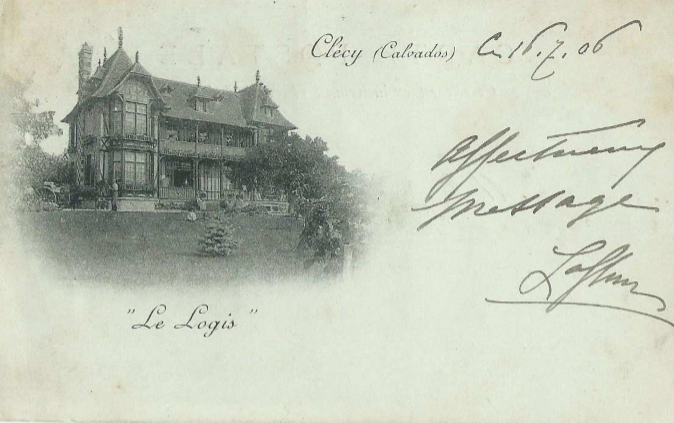 Clécy (Calvados) Ce 16.7.06
Affectueux
message
"Le Logis"